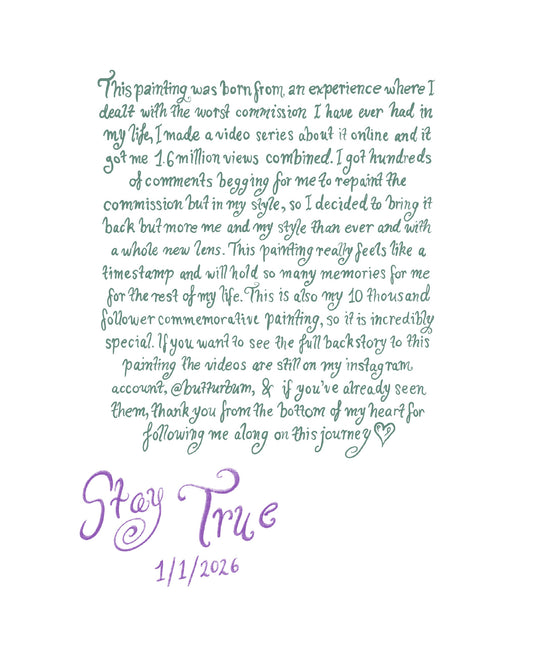 This painting was born from an experience where I
dealt with the worst commission I have ever had in
my life, I made a video series about it online and it
got me 1.6 million views combined. I got hundreds
of comments begging for me to repaint the
commission but in my style, so I decided to bring it
back but more me and my style than ever and with
a whole new lens. This painting really feels like a
timestamp and will hold so many memories for me
for the rest of my life. This is also my 10 thousand
follower commemorative painting, so it is incredibly
special. If you want to see the full backstory to this
painting the videos are still on my instagram
account, @butturbum, & if you've already seen
them, thank you from the bottom of my heart for
following me along on this journey ♡
Stay True
1/1/2026